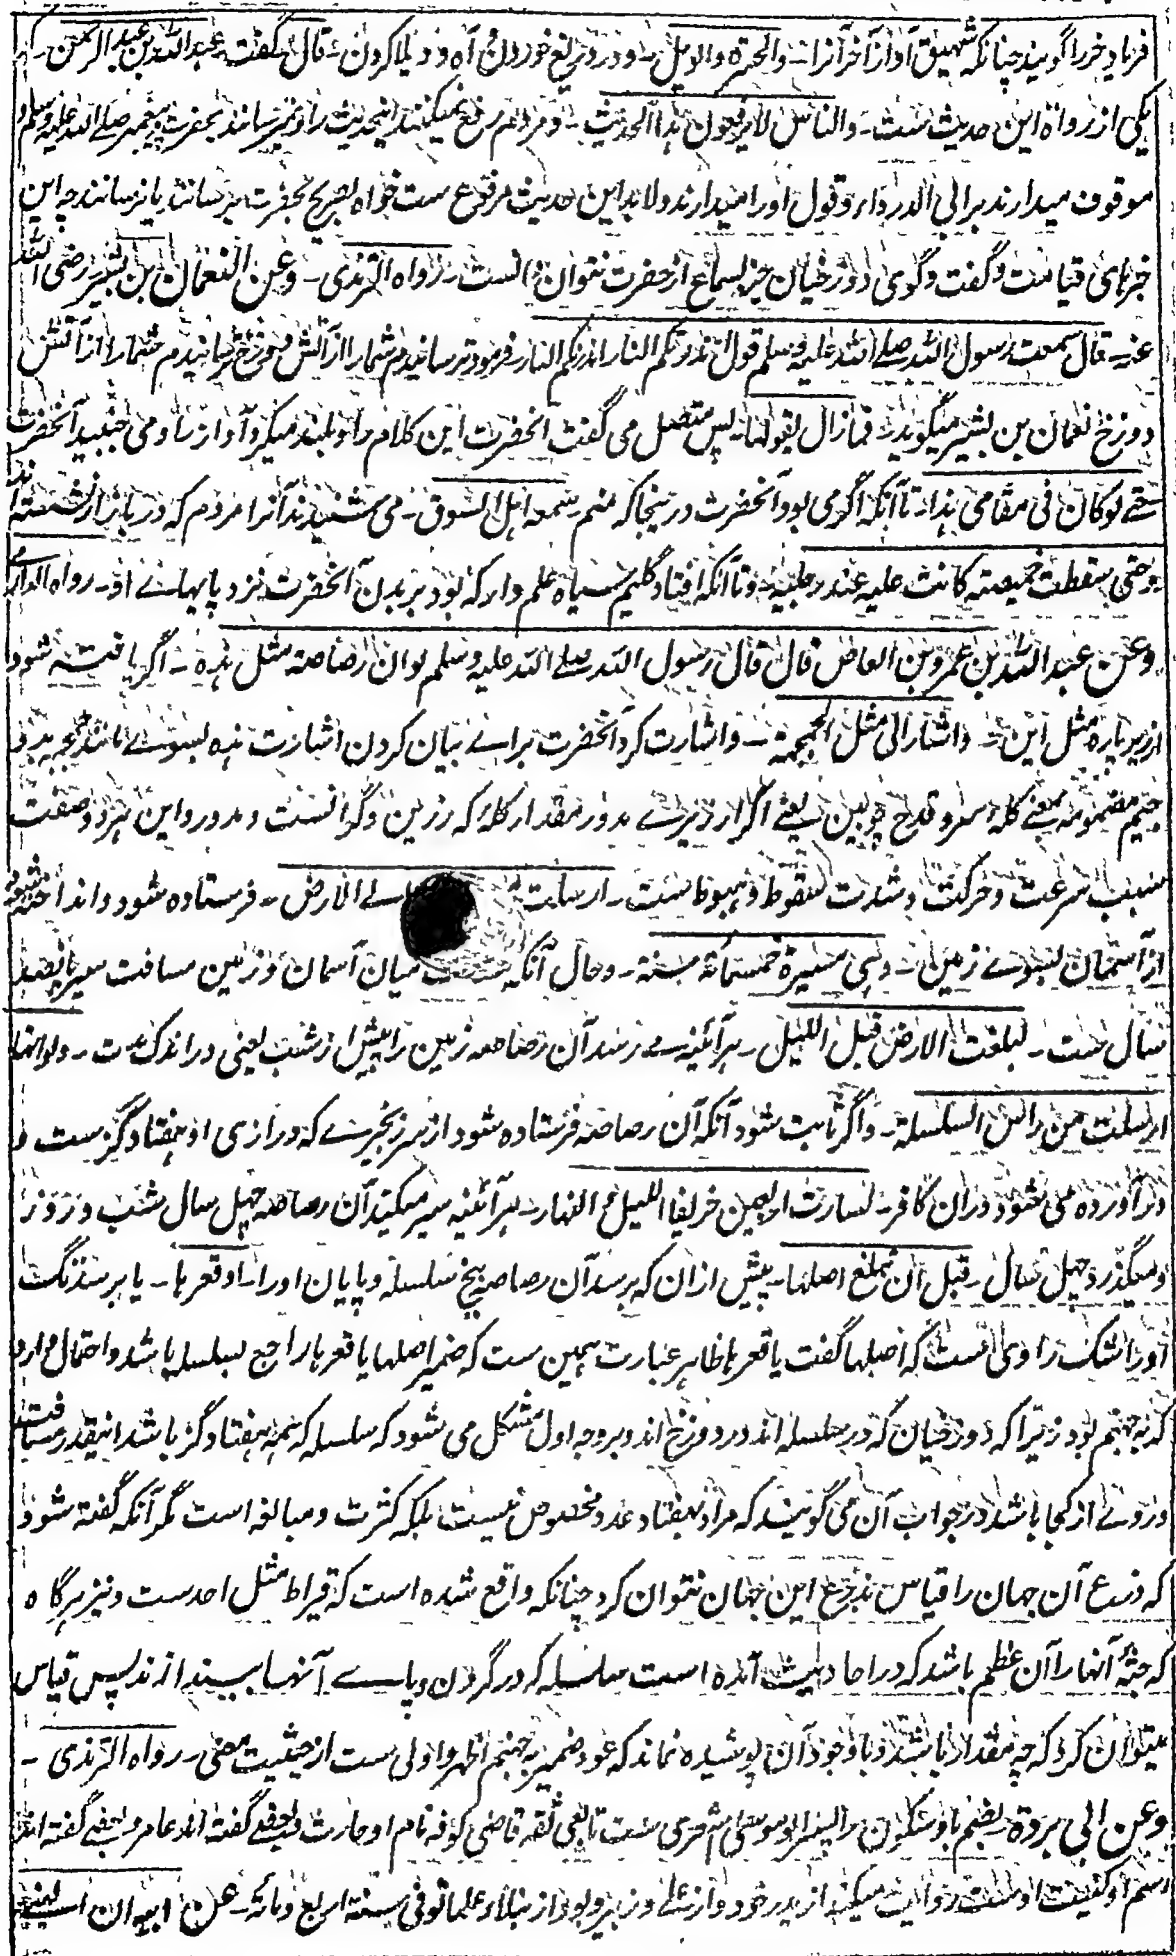 فریاد خر را گویند چنانکه شهیق آواز آخر آنرا ۔ والحسرة والویل ۔ و در دریغ خوردن و آه و ویلا کردن ۔ قال گفت عبد الله بن عبد الرحمن ۔ که
یکی از رواة این حدیث ست ۔ والناس لا یرفعون هذا الحدیث ۔ و مردم رفع نمیکنند این حدیث را و نمیرسانند بحضرت پیغمبر صلے الله علیه وسلم و
موقوف میدارند بر ابی الدرداء و قول او را میدارند و لابد این حدیث مرفوع ست خواه بصریح بحضرت برسانند یا نرسانند چه این
خبرهای قیامت و گفت و گوی دوزخیان جز بسماع از حضرت نتوان دانست ۔ رواه الترمذی ۔ وعن النعمان بن بشیر رضی الله
عنه ۔ قال سمعت رسول الله صلے الله علیه وسلم یقول انذرتکم النار انذرتکم النار فرمود ترسانیدم شما را از آتش دوزخ ترسانیدم شما را از آتش
دوزخ نعمان بن بشیر میگوید ۔ فما زال یقولها ۔ پس متصل می گفت آنحضرت این کلام را و بلند میکرد آواز را و می جنبید آنحضرت
حتے لو کان فی مقامی هذا ۔ تا آنکه اگر می بود آنحضرت درینجا که منم ۔ سمعه اهل السوق ۔ می شنیدند آنرا مردم که در بازار نشسته اند
و حتی سقطت خمیصة کانت علیه عند رجلیه ۔ و تا آنکه افتاد گلیم سیاه علم دار که بود بر بدن آنحضرت نزد پایهاے او ۔ رواه الدارمی
وعن عبد الله بن عمرو بن العاص قال قال رسول الله صلے الله علیه وسلم لو ان رصاصة مثل هذه ۔ اگر یافته شود
ارزیز پاره مثل این ۔ واشار الی مثل الجمجمة ۔ و اشارت کرد آنحضرت براے بیان کردن اشارت هذه بسوے مانند جمجمه بدو
جیم مضمومه بمعنے کله سر و قدح چوبین یعنے اگر ارزیزے مدور مقدار کله که رزین و گرانست و مدور و این هر دو صفت
سبب سرعت و حرکت و شدت سقوط و هبوط ست ۔ ارسلت الے الارض ۔ فرستاده شود و انداخته شود
از آسمان بسوے زمین ۔ وهی مسیرة خمسمائة سنة ۔ و حال آنکه میان آسمان و زمین مسافت سیر پانصد
سال ست ۔ لبلغت الارض قبل اللیل ۔ هر آئینه مے رسد آن رصاصه زمین را پیش از شب یعنی در اندک مدت ۔ ولو انها
ارسلت من راس السلسلة ۔ و اگر ثابت شود آنکه آن رصاصه فرستاده شود از سر زنجیرے که درازی او هفتاد گز ست و
در آورده می شود دران کافر ۔ لسارت اربعین خریفا اللیل و النهار ۔ هر آئینه سیر میکند آن رصاصه چهل سال شب و روز
و میگذرد چهل سال ۔ قبل ان تبلغ اصلها ۔ پیش ازان که برسد آن رصاصه بیخ سلسله و پایان او را ۔ او قعرها ۔ یا برسد تگ
او را شک راوی است که اصلها گفت یا قعرها ظاهر عبارت همین ست که ضمیر اصلها یا قعرها راجع بسلسله باشد و احتمال دارد
که به جهنم بود زیرا که دوزخیان که در سلسله اند در دوزخ اند و بر وجه اول مشکل می شود که سلسله که همه هفتاد گز باشد اینقدر مسافت
در وے از کجا باشد در جواب آن می گویند که مراد بهفتاد عدد مخصوص نیست بلکه کثرت و مبالغه است مگر آنکه گفته شود
که ذرع آن جهان را قیاس بذرع این جهان نتوان کرد چنانکه واقع شده است که قیراط مثل احد ست و نیز هرگاه
که جثه آنها را آن عظم باشد که در احادیث آمده است سلسله که در گردن و پاے آنها بیندازند پس قیاس
میتوان کرد که چه مقدار باشد و با وجود آن پوشیده نماند که عود ضمیر به جهنم اظهر و اولی ست از حیثیت معنی ۔ رواه الترمذی ۔
وعن ابی بردة بضم با و سکون را پسر ابو موسی اشعری ست تابعی ثقه قاضی کوفه نام او حارث و بعضے گفته اند عامر و بعضے گفته اند
اسم او کنیت اوست روایت میکند از پدر خود و از علی و زبیر و بود از نبلاء علما توفی سنة اربع و مائة ۔ عن ابیه ان النبی